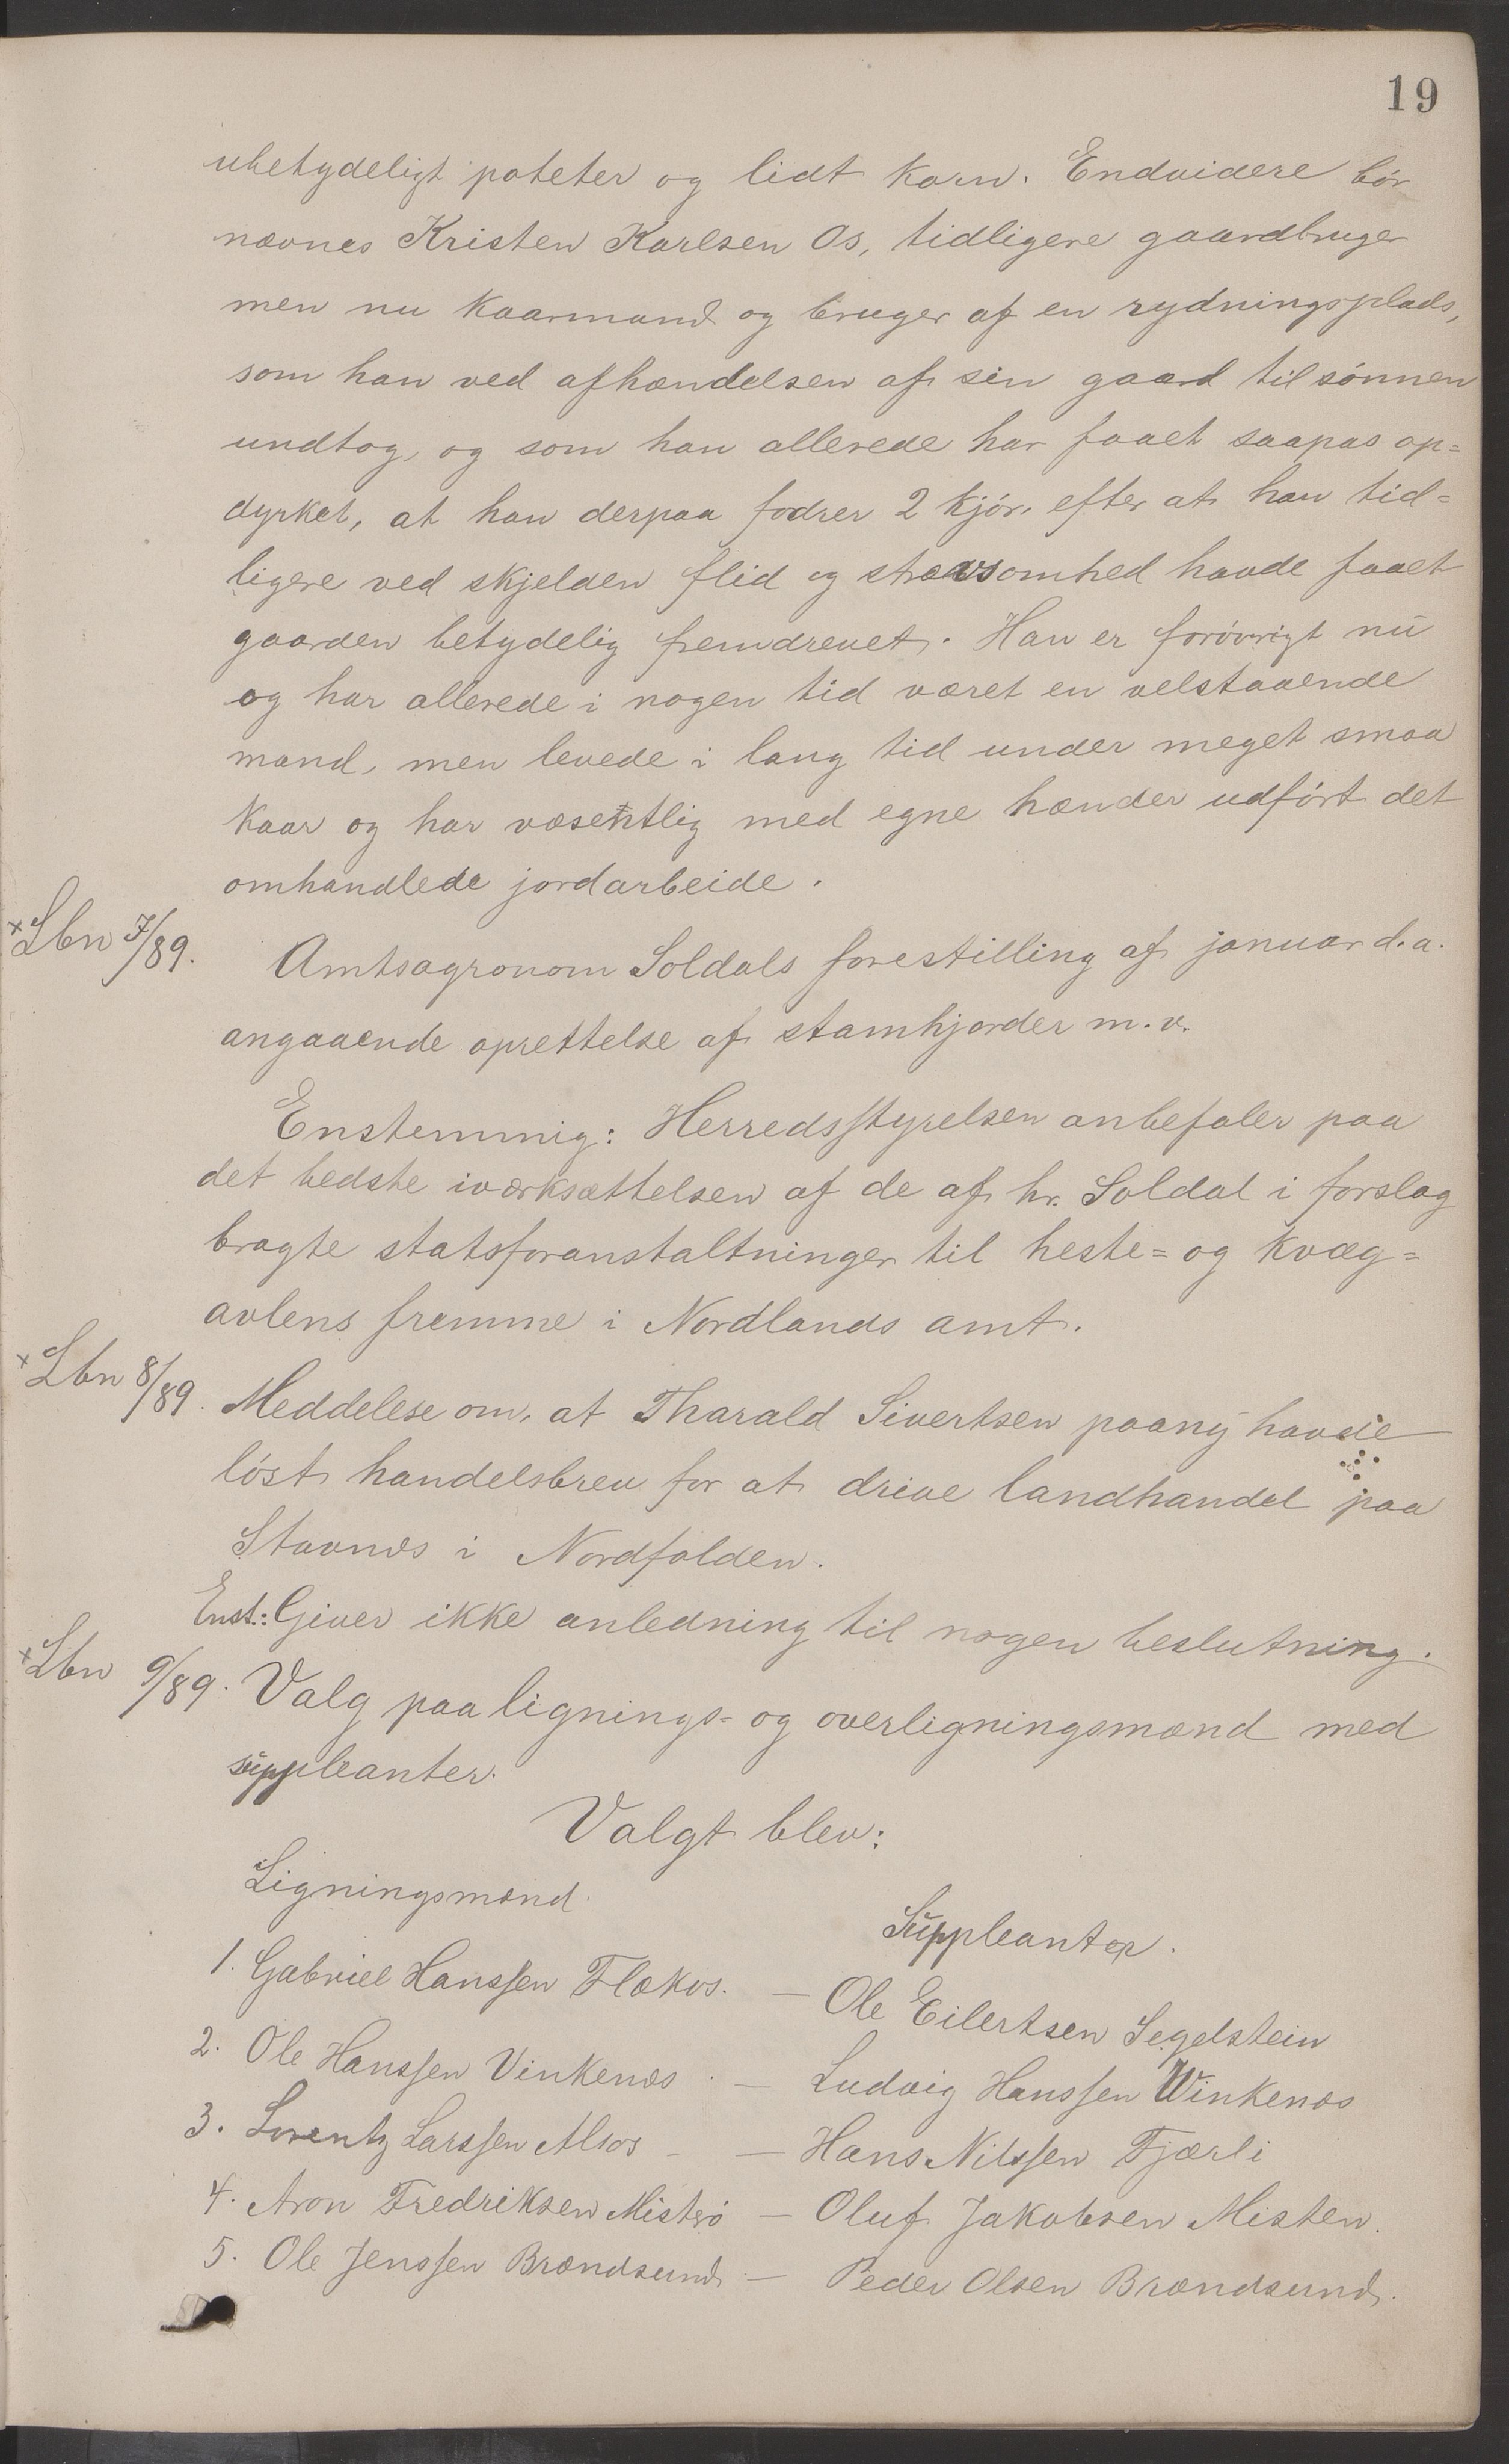 19
ubetydeligt poteter og lidt korn. Endvidere bör
nævnes Kristen Karlsen Os, tidligere gaardbruger
men nu kaarmand og bruger af en rydningsplads,
som han ved afhændelsen af sin gaard til sönnen
undtog, og som han allerede har faaet saapas op=
dyrket, at han derpaa fodrer 2 kjör, efter at han tid=
ligere ved skjelden flid og strævsomhed havde faaet
gaarden betydelig fremdrevet. Han er forövrigt nu
og har allerede i nogen tid været en velstaaende
mand, men levede i lang tid under meget smaa
kaar og har væsentlig med egne hænder udfört det
omhandlede jordarbeide.
× Lbn 7/89. Amtsagronom Soldals forestilling af januar d.a.
angaaende oprettelse af stamhjorder m.v.
Enstemmig: Herredsstyrelsen anbefaler paa
det bedste iværksættelsen af de af hr. Soldal i forslag
bragte statsforanstaltninger til heste= og kvæg=
avlens fremme i Nordlands amt.
× Lbn 8/89. Meddelese om, at Tharald Sivertsen paany havde
löst handelsbrev for at drive landhandel paa
Stavnæs i Nordfolden.
Enst.: Giver ikke anledning til nogen beslutning.
× Lbn 9/89. Valg paa lignings- og overligningsmænd med
suppleanter.
Valgt blev:
Ligningsmænd. Suppleanter.
1. Gabriel Hanssen Flækos. — Ole Eilertsen Segelstein
2. Ole Hanssen Vinkenæs. — Ludvig Hanssen Winkenæs
3. Lorentz Larssen Alsos — Hans Nilssen Fjærli
4. Aron Fredriksen Misterö — Oluf Jakobsen Misten.
5. Ole Jenssen Brændsund — Peder Olsen Brændsund.